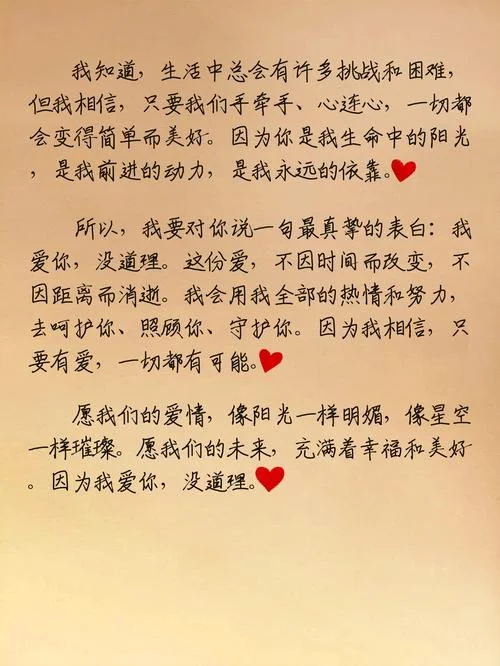 我知道，生活中总会有许多挑战和困难，
但我相信，只要我们手牵手、心连心，一切都
会变得简单而美好。因为你是我生命中的阳光
，是我前进的动力，是我永远的依靠。
所以，我要对你说一句最真挚的表白：我
爱你，没道理。这份爱，不因时间而改变，不
因距离而消逝。我会用我全部的热情和努力，
去呵护你、照顾你、守护你。因为我相信，只
要有爱，一切都有可能。
愿我们的爱情，像阳光一样明媚，像星空
一样璀璨。愿我们的未来，充满着幸福和美好
。因为我爱你，没道理。